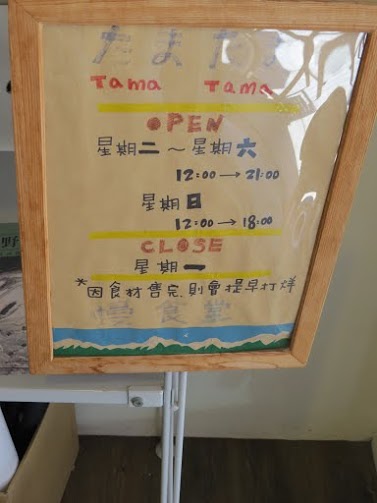 たまたま
Tama Tama
OPEN
星期二～星期六
12:00→21:00
星期日
12:00→18:00
CLOSE
星期一
*因食材售完,則會提早打烊
食堂
野